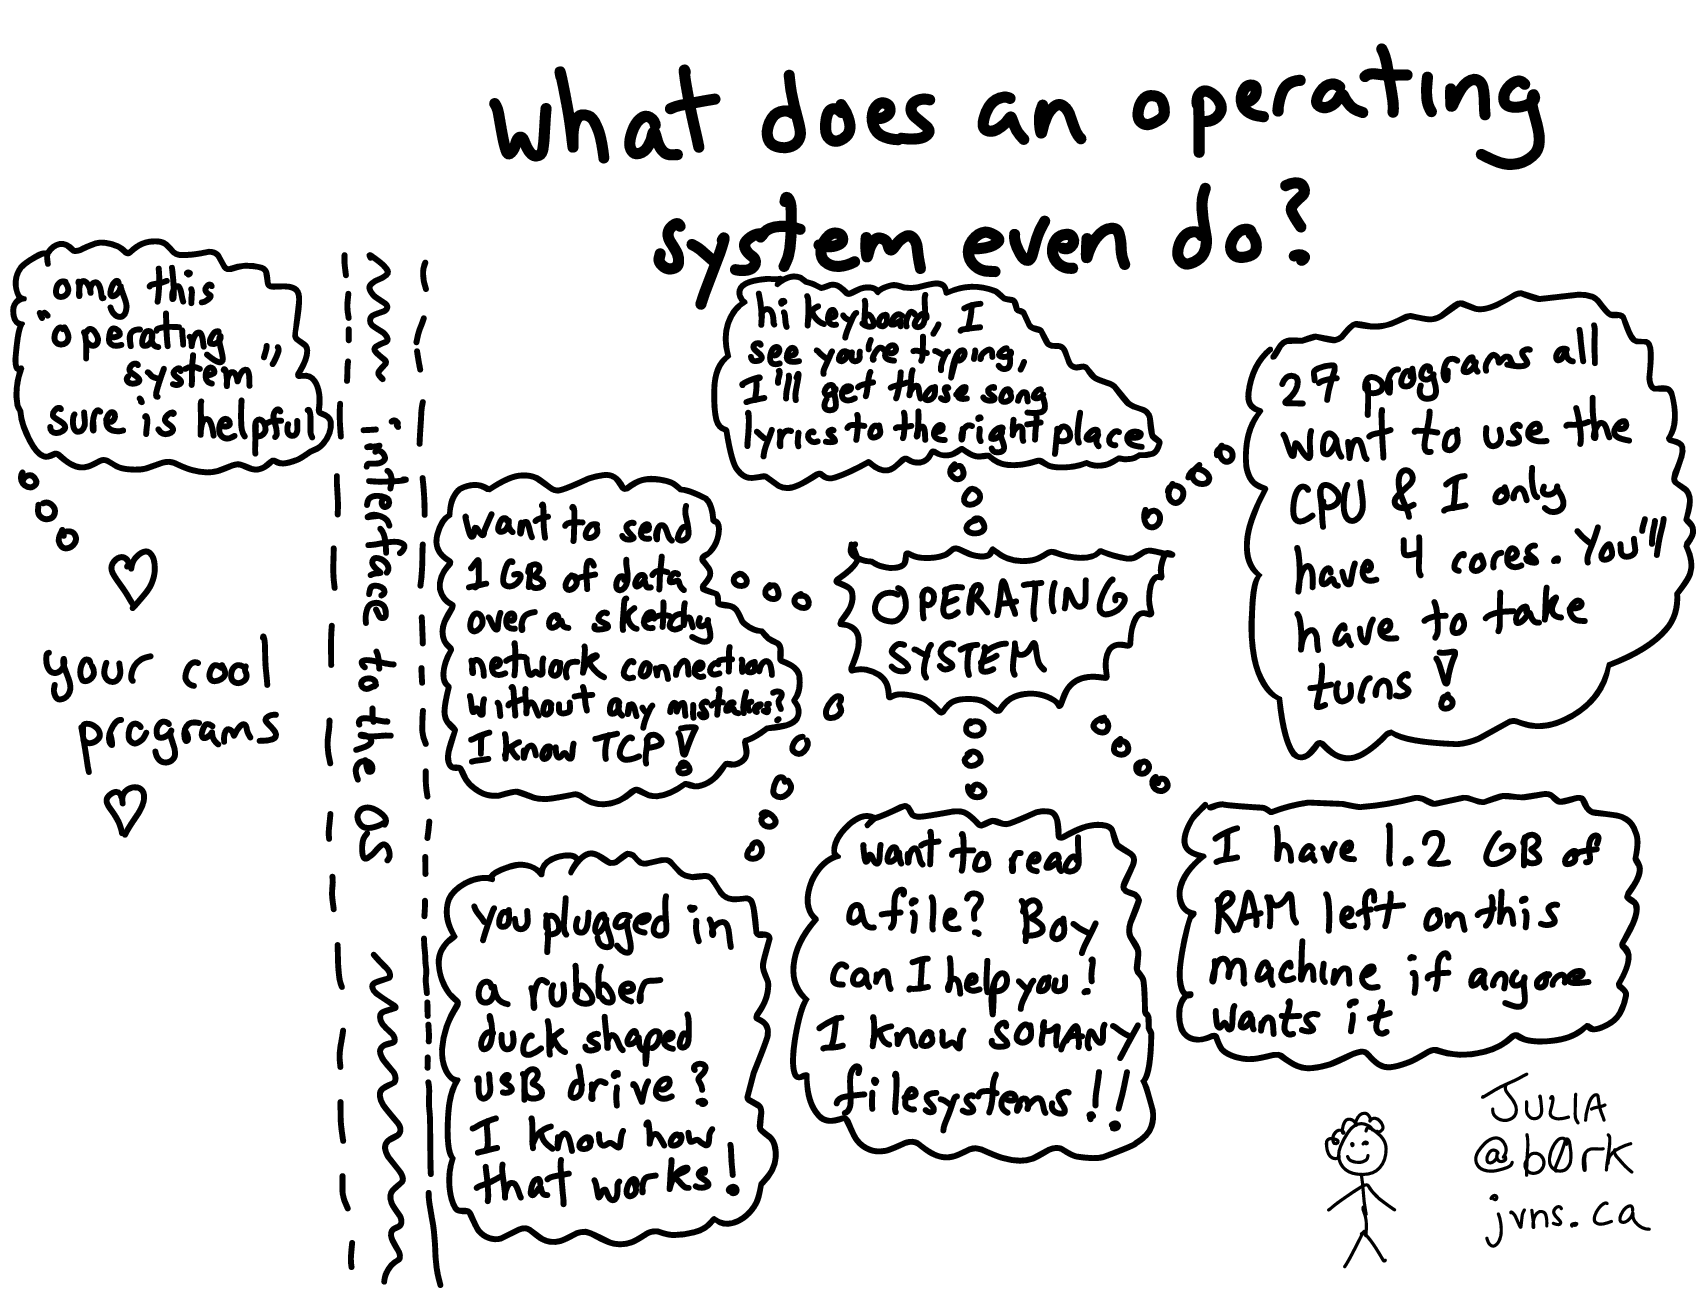 what does an operating
system even do?
omg this
"operating
system"
sure is helpful
your cool
programs
interface to the OS
hi keyboard, I
see you're typing,
I'll get those song
lyrics to the right place
27 programs all
want to use the
CPU & I only
have 4 cores. You'll
have to take
turns!
want to send
1 GB of data
over a sketchy
network connection
without any mistakes?
I know TCP!
OPERATING
SYSTEM
you plugged in
a rubber
duck shaped
USB drive?
I know how
that works!
want to read
a file? Boy
can I help you!
I know SO MANY
filesystems!!
I have 1.2 GB of
RAM left on this
machine if anyone
wants it
JULIA
@b0rk
jvns.ca